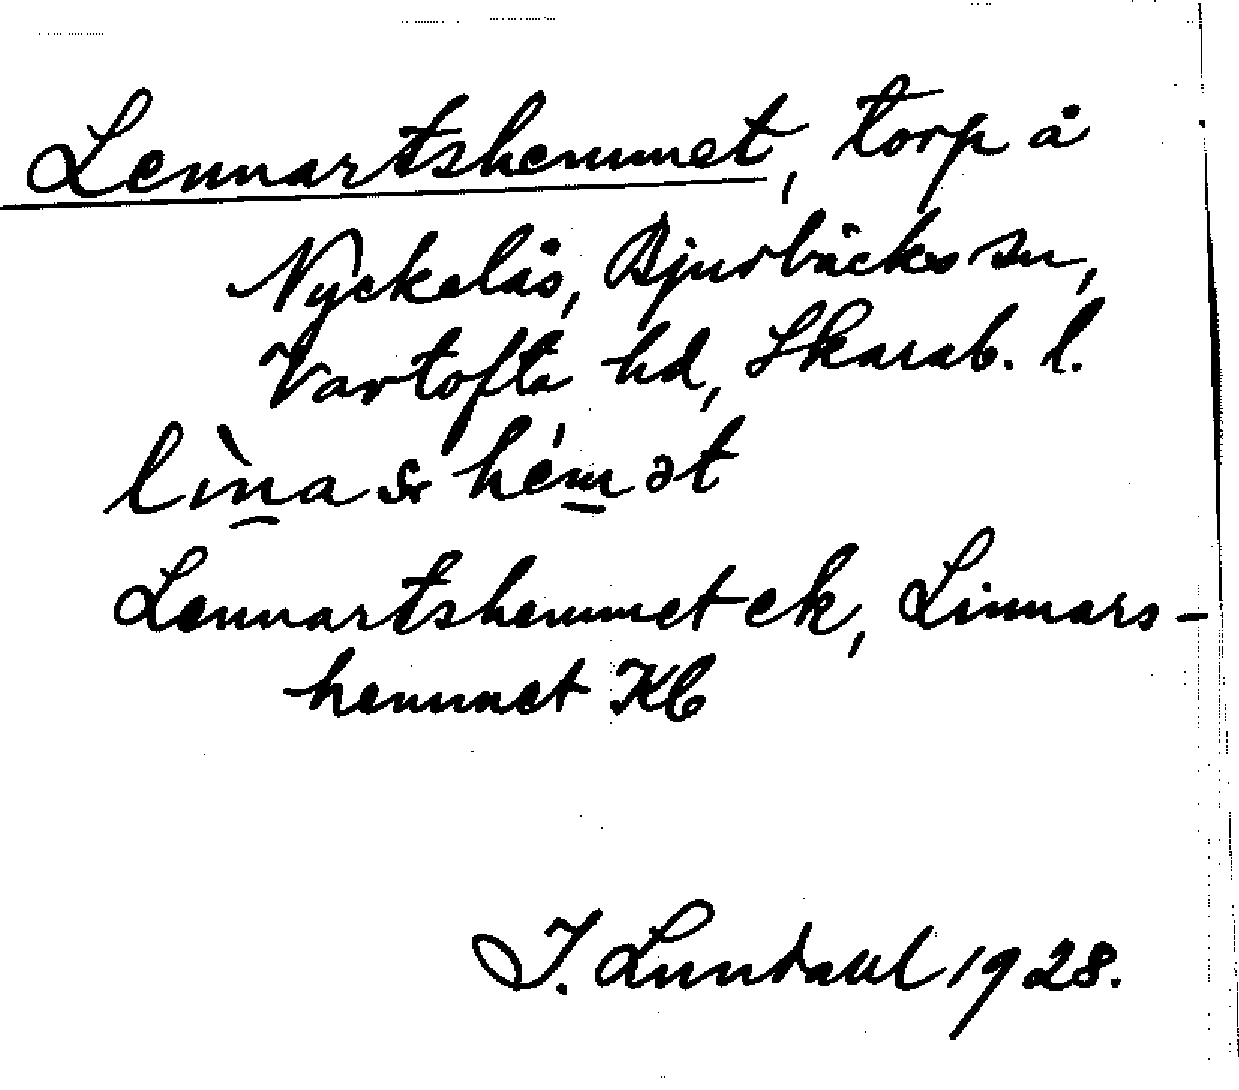 Lennartshemmet, torp å
Nyckelås, Bjurbäcks sn,
Vartofta hd, Skarab. l.
lìn̠a sr hém̠ət
Lennartshemmet ek, Linnars-
hemmet Kb
I. Lundahl 1928.